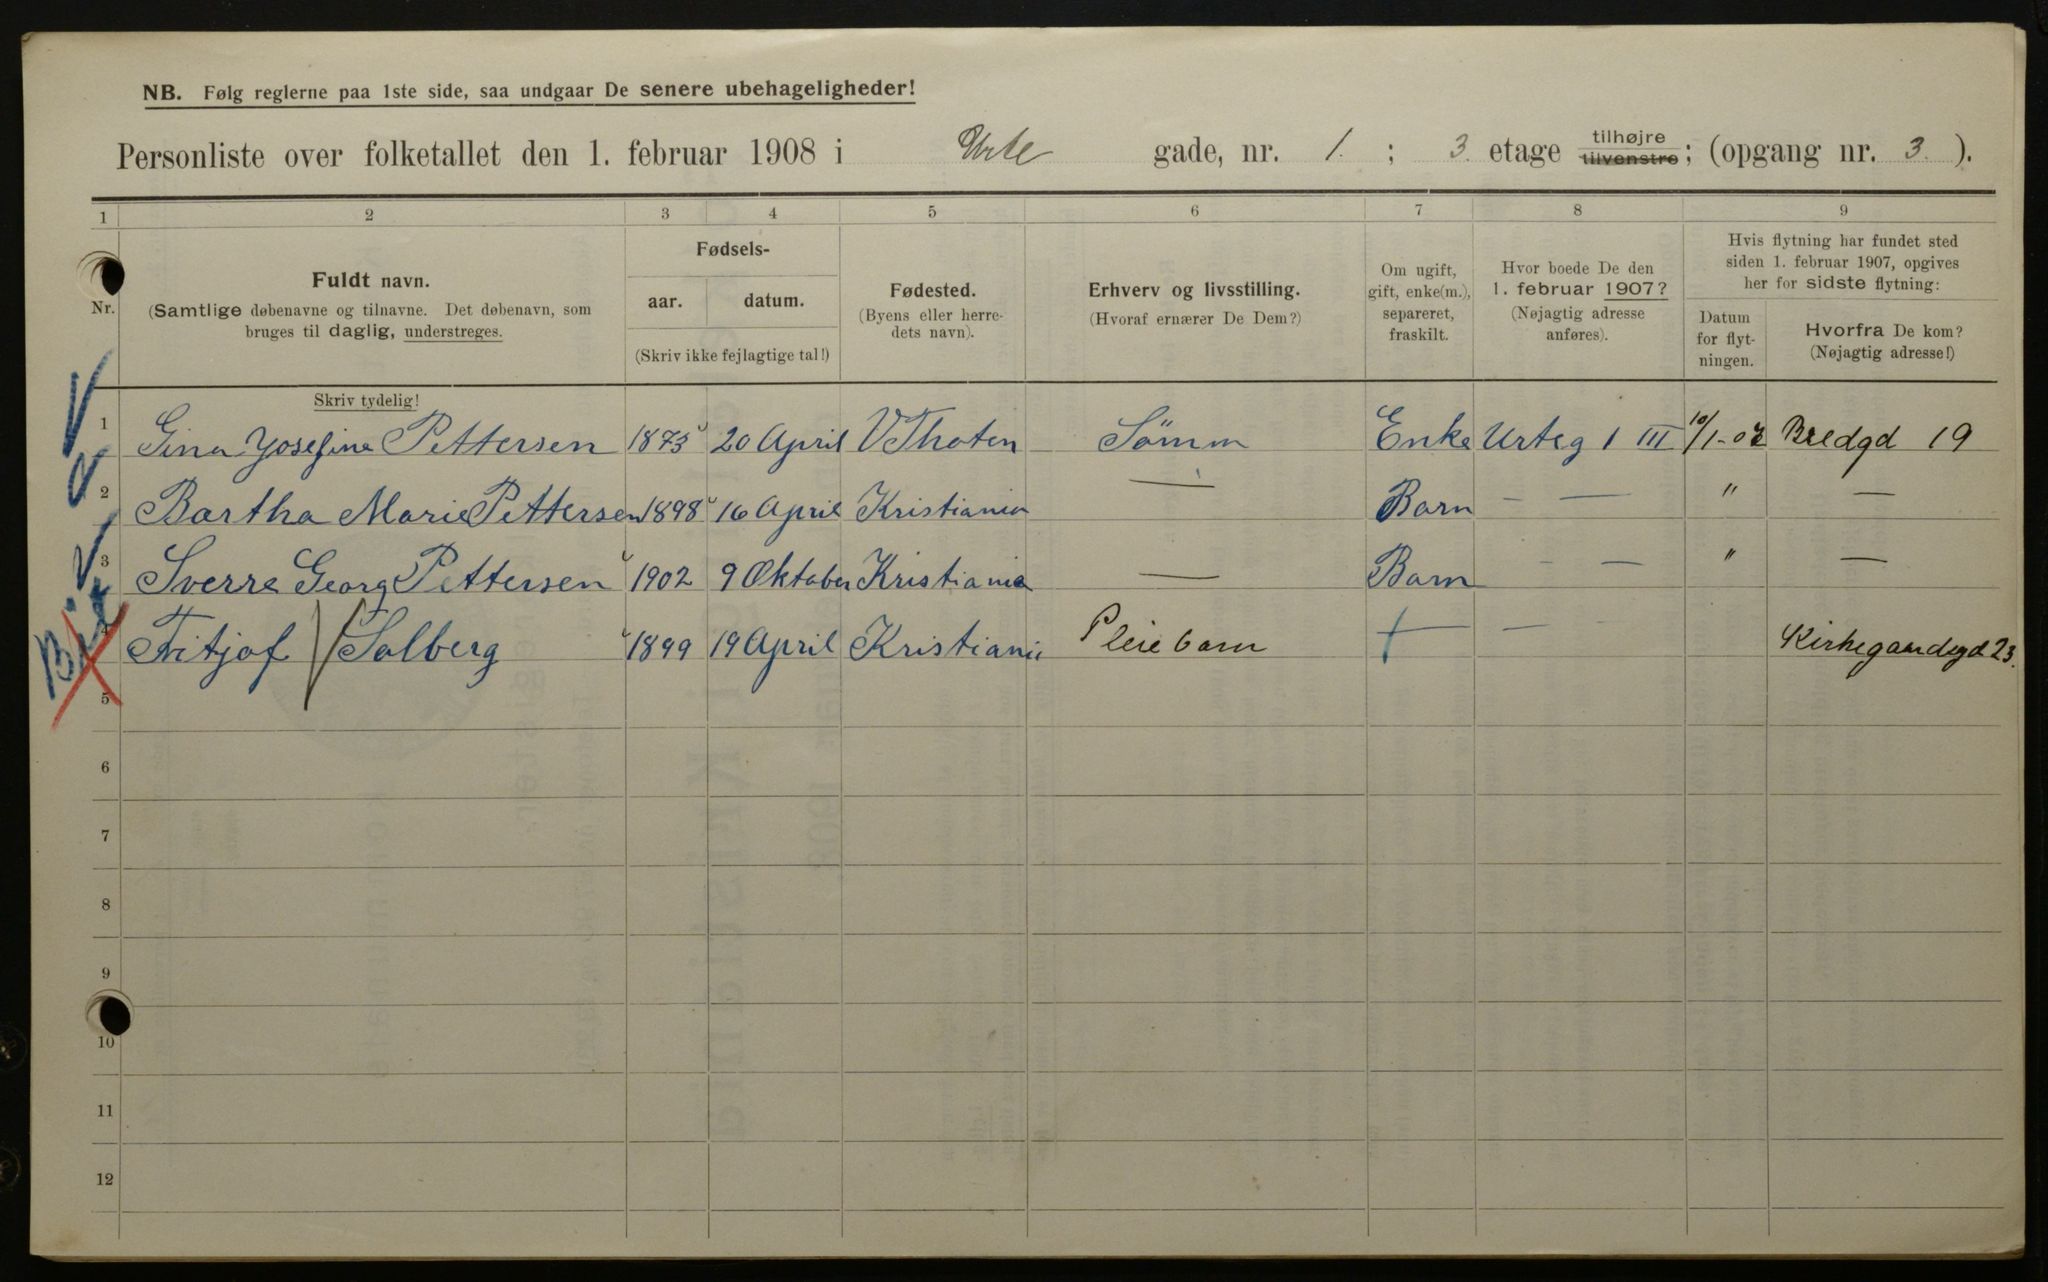 NB. Følg reglerne paa 1ste side, saa undgaar De senere ubehageligheder!
Personliste over folketallet den 1. februar 1908 i Urte gade, nr. 1. ; 3. etage tilhøjre tilvenstre; (opgang nr. 3. ).
1 2 3 4 5 6 7 8 9
Nr.
Fuldt navn.
(Samtlige døbenavne og tilnavne. Det døbenavn, som
bruges til daglig, understreges.
Skriv tydelig!
Fødsels-
aar. datum.
(Skriv ikke fejlagtige tal!)
Fødested.
(Byens eller herre-
dets navn).
Erhverv og livsstilling.
(Hvoraf ernærer De Dem?)
Om ugift,
gift, enke(m.),
separeret,
fraskilt.
Hvor boede De den
1. februar 1907?
(Nøjagtig adresse
anføres).
Hvis flytning har fundet sted
siden 1. februar 1907, opgives
her for sidste flytning:
Datum
for flyt-
ningen.
Hvorfra De kom?
(Nøjagtig adresse!)
1 Gina Josefine Pettersen 1873 20 April V Thoten Sömm Enke Urteg 1 III 10/1-07 Bredgd 19
2 Bartha Marie Pettersen 1898 16 April Kristiania — Barn — — " —
3 Sverre Georg Pettersen 1902 9 Oktober Kristiania — Barn - — " —
4 Fritjof / Solberg 1899 19 April Kristiania Pleiebarn + — - Kirkegaardsgd 23.
5
6
7
8
9
10
11
12